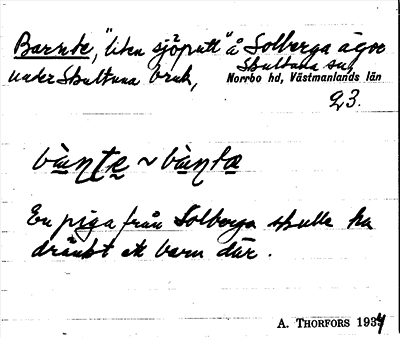 Barnte, "liten sjöputt" å Solberga ägor
under Skultuna bruk, Skultuna sn,
Norrbo hd, Västmanlands län
23.
bànte ~ bànta
En piga från Solberga skulle ha
dränkt ett barn där.
A. THORFORS 1934